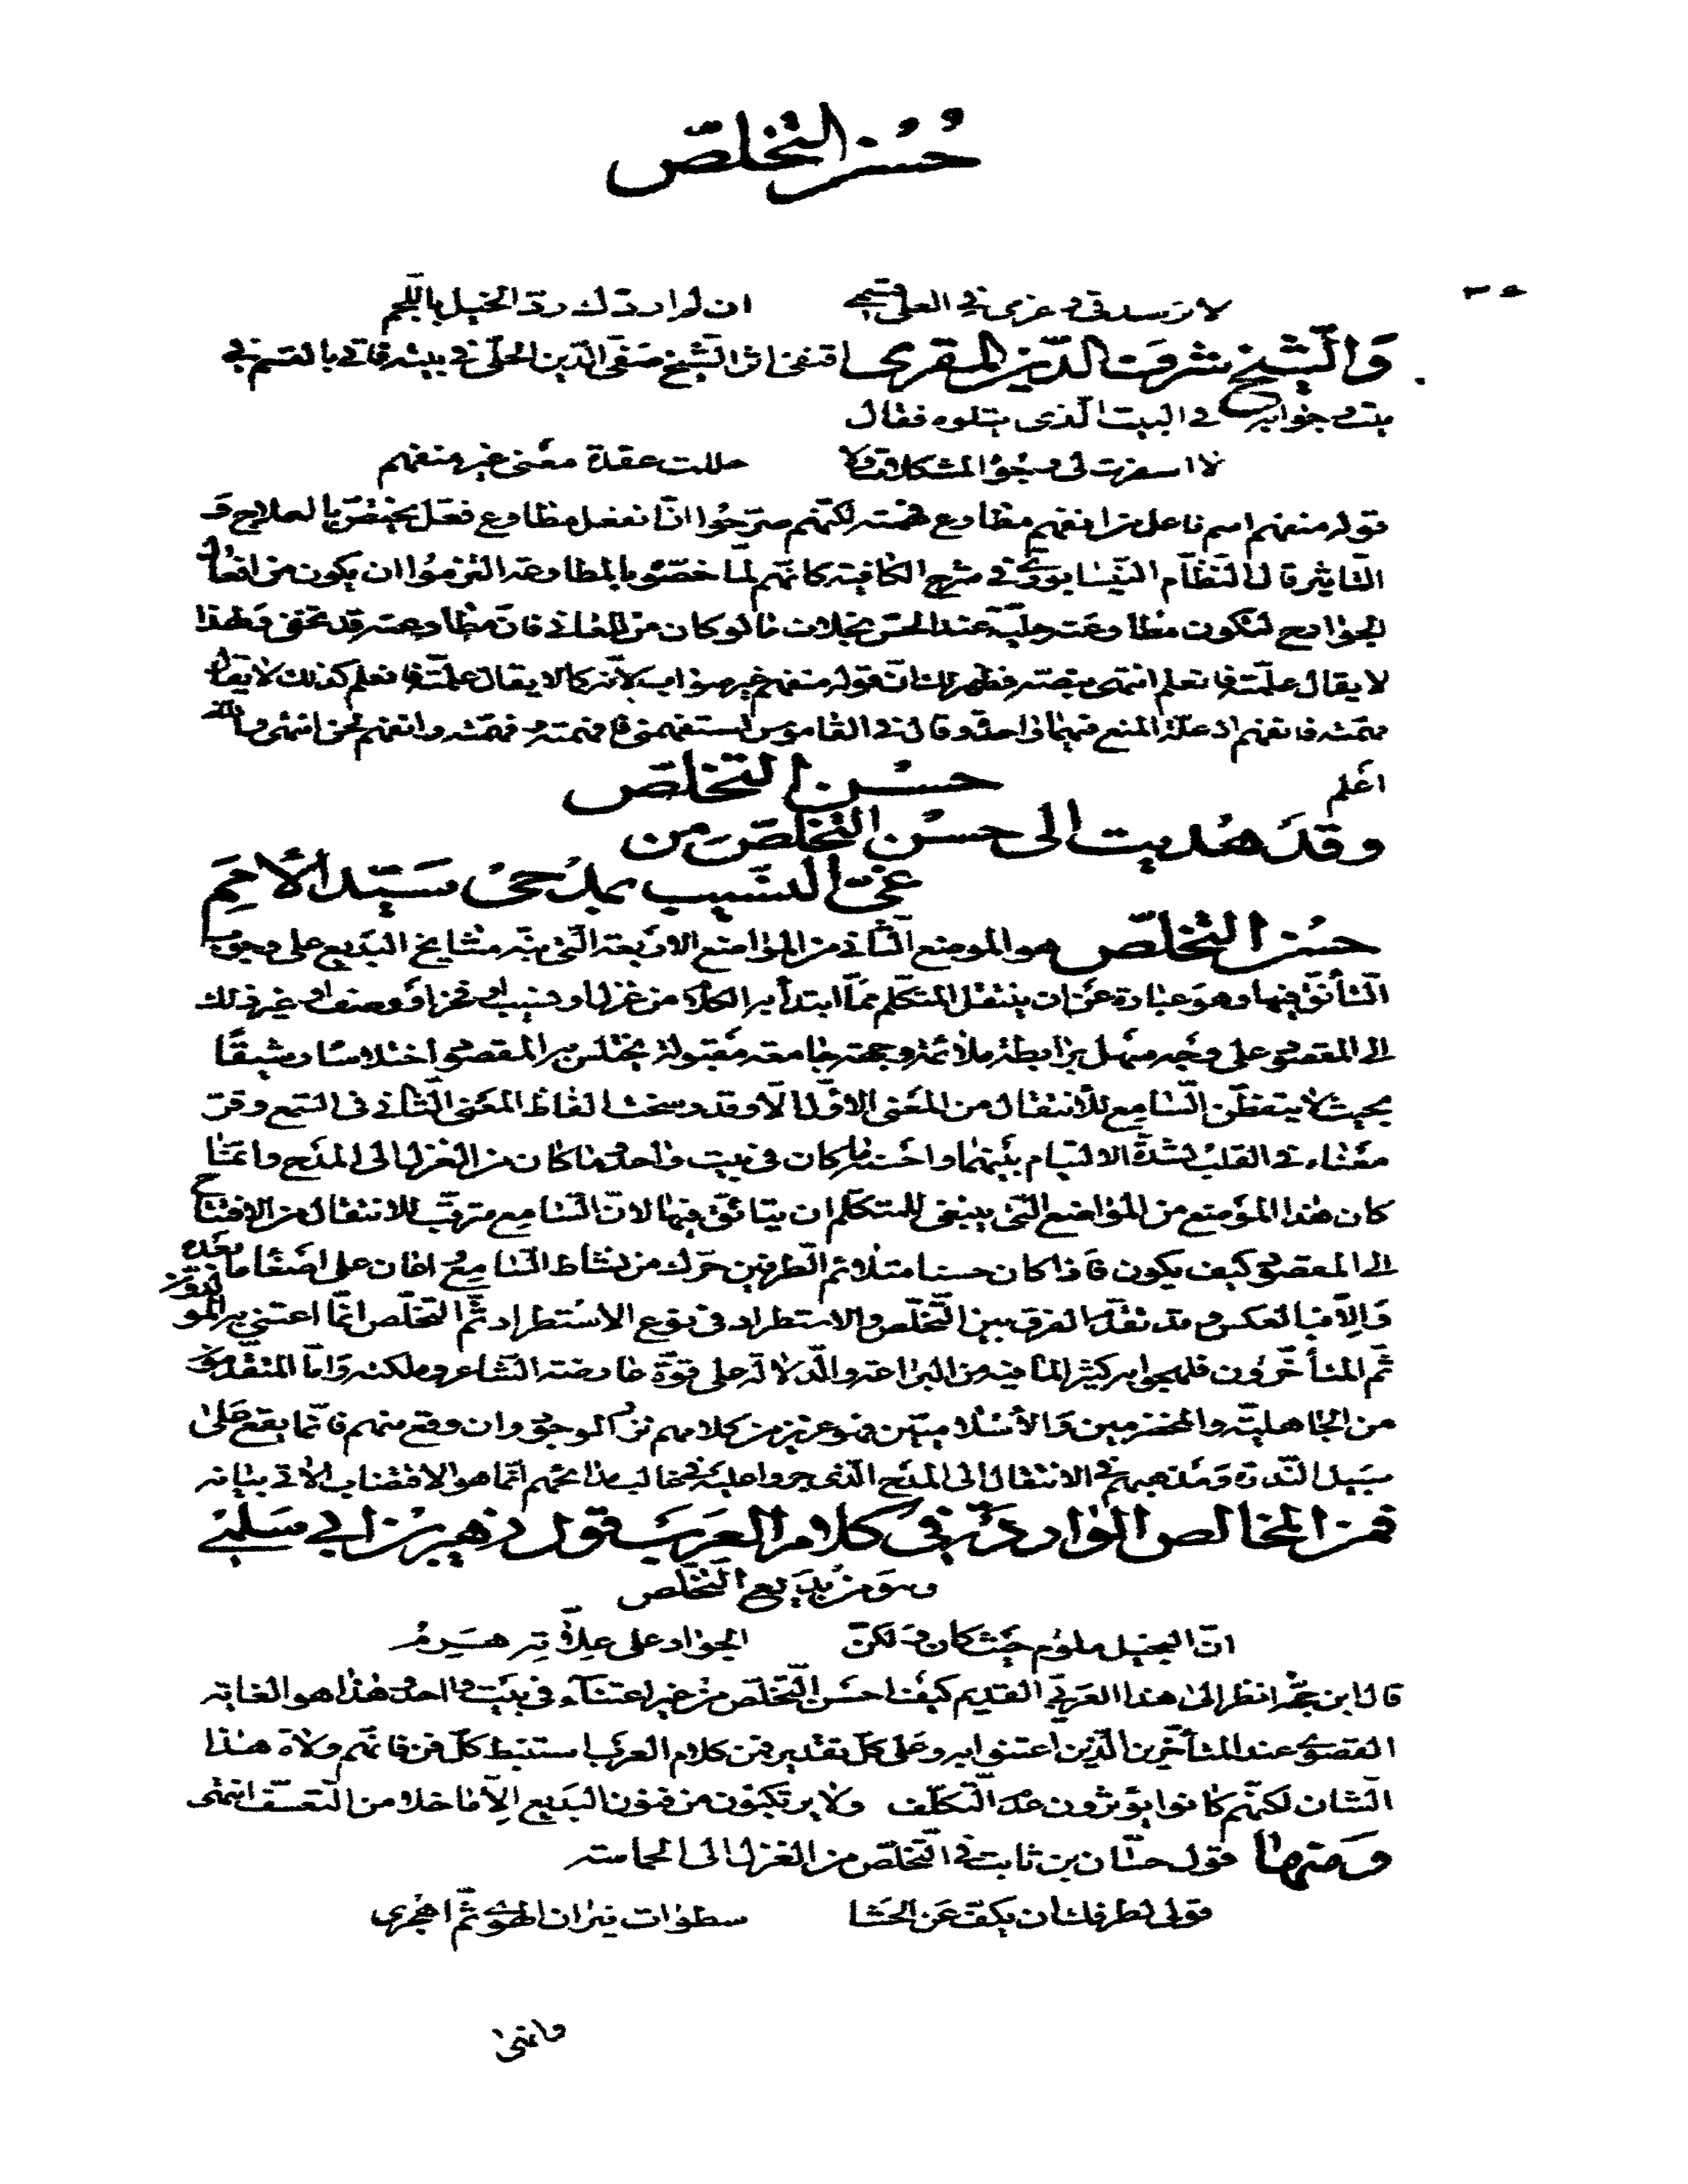 حُسْن التخلّص
لا برسد فى و عزمى فى العلى
ان لم اردّك ردّ الخيل باللجم
وَالشّيخ شرف الدّين المقرى اقتفى اثر الشّيخ صَفىّ الدّين الحلّى فى بيته فاتى بالقسم فى
بيت و جوابه فى البيت الّذى يتلوه فقال
لا اسفرت لى وجوه المشكلات ولا
حللت عقدة معنى غير منفهم
قوله منفهم اسم فاعل من انفهم مطاوع فهمته لكنّهم صرّحُوا انّ انفعل مطاوع فعَل يختصّ بالعلاج و
التاثير قال النظّام النّيسابورى فى شرح الكافية كانّهم لمّا خصّوه بالمطاوعة التزموا ان يكون من افعال
الجوارح لتكون مطاوعته جليّة عند الحسّ بخلاف ما لو كان من المعانى فانّ مطاوعته قد تخفى فلهذا
لا يقال علمته فانعلم انتهى بنصّه فظهر لك انّ قوله منفهم غير صواب لانّه كما لا يقال علمته فانعلم كذلك لا يقال
فهمته فانفهم اذ علّة المنع فيهما واحدة و قال فى القاموس استفهمنى فافهمته و فهّمته و انفهم لحن انتهى والله
اعْلم
حسْن التخلّص
وقد هُديت الى حسْن التخلّص من
غىّ النسيب بمدحى سَيّد الأمم
حسْن التخلّص هو الموضع الثّانى من المواضع الاربعة الّتى نبّه مشايخ البديع على وجوب
التّأنّق فيها وهو عبارة عن ان ينتقل المتكلّم ممّا ابتدأ به الكلام من غزل او نسيب او فخر او وصف او غير ذلك
الى المقصود على وجه سهل برابطة ملائمة وجهة جامعة مقبولة يختلس به المقصود اختلاسا رشيقًا
بحيث لا يتفطّن السّامع للأنتقال من المعنى الاوّل الّا وقد رسخت الفاظ المعنى الثّانى فى السّمع و قرّ
معناه فى القلب لشدّة الالتيام بينهما واحسنه ما كان فى بيت واحد وما كان من الغزل الى المدْح وانّما
كان هذا الموضع من المواضع الّتى ينبغى للمتكلّم ان يتانّق فيها لانّ السّامع مترقّب للانتقال من الافتتاح
الى المقصود كيف يكون فاذا كان حسنا متلائم الطّرفين حرّك من نشاط السّامع واعان على اصْغاء ما بعده
وَالّا فبالعكس و قد تقدّم الفرق بين التّخلّص والاستطراد فى نوع الأستطراد ثمّ التخلّص انّما اعتنى به المولّدون
ثمّ المتأخّرون فلهجوا به كثيرا لما فيه من البراعة والدّلالة على قوّة عارضة الشّاعر وملكته وَامّا المتقدّمون
من الجاهلية والمخضرمين وَالأسلاميّين فهو عزيز من كلامهم نزر الوجود وان وقع منهم فانّما يقع على
سَبيل النّدرة وَمذهبهم فى الانتقال الى المدْح الّذى جروا عليه فى غالب مدائحهم انّما هو الاقتضاب الآتى بيانه
فمن المخالص الواردة فى كلام العَرب قول زهير بن ابى سَلمى
وهو من بَديع التّخلّص
انّ البخيل ملوم حيْث كان ولكنّ
الجواد على علّاته هَرِمُ
قال ابن حجّة انظر الى هذا العَربى القديم كيف احسَن التّخلّص من غير اعتناء فى بيْت واحد و هٰذا هو الغاية
القصوى عند المتأخّرين الّذين اعتنوا به و على كلّ تقدير فمن كلام العرب استنبط كلّ فن فانّهم ولاة هٰذا
الشان لكنّهم كانوا يؤثرون عدَم التّكلّف ولا يرتكبون من فنون البَديع الّا ما خلا من التعسّف انتهى
وَمنها قول حسّان بن ثابت فى التّخلّص من الغزل الى الحماسة
قولى لطرفك ان يكفّ عن الحشا
سطوات نيران الهوى ثمّ اهْجرى
وانهى